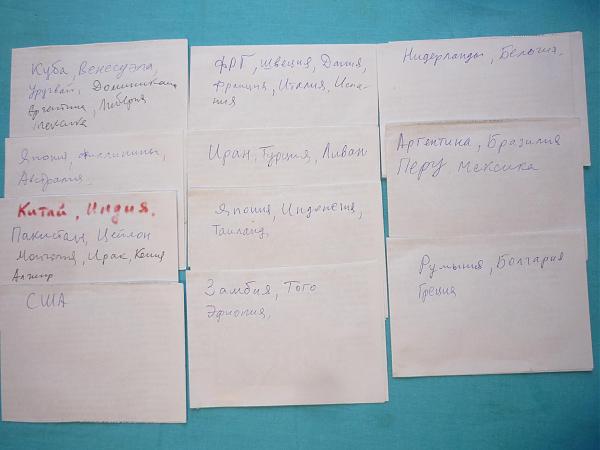 Куба, Венесуэла,
Уругвай, Доминикана
Аргентина, Либерия
Мексика
Япония, Филиппины,
Австралия.
Китай, Индия.
Пакистан, Цейлон
Монголия, Ирак, Кения
Алжир
США
ФРГ, Швеция, Дания,
Франция, Италия, Испа-
ния
Иран, Турция, Ливан
Япония, Индонезия,
Таиланд,
Замбия, Того
Эфиопия,
Нидерланды, Бельгия.
Аргентина, Бразилия
Перу, Мексика
Румыния, Болгария
Греция